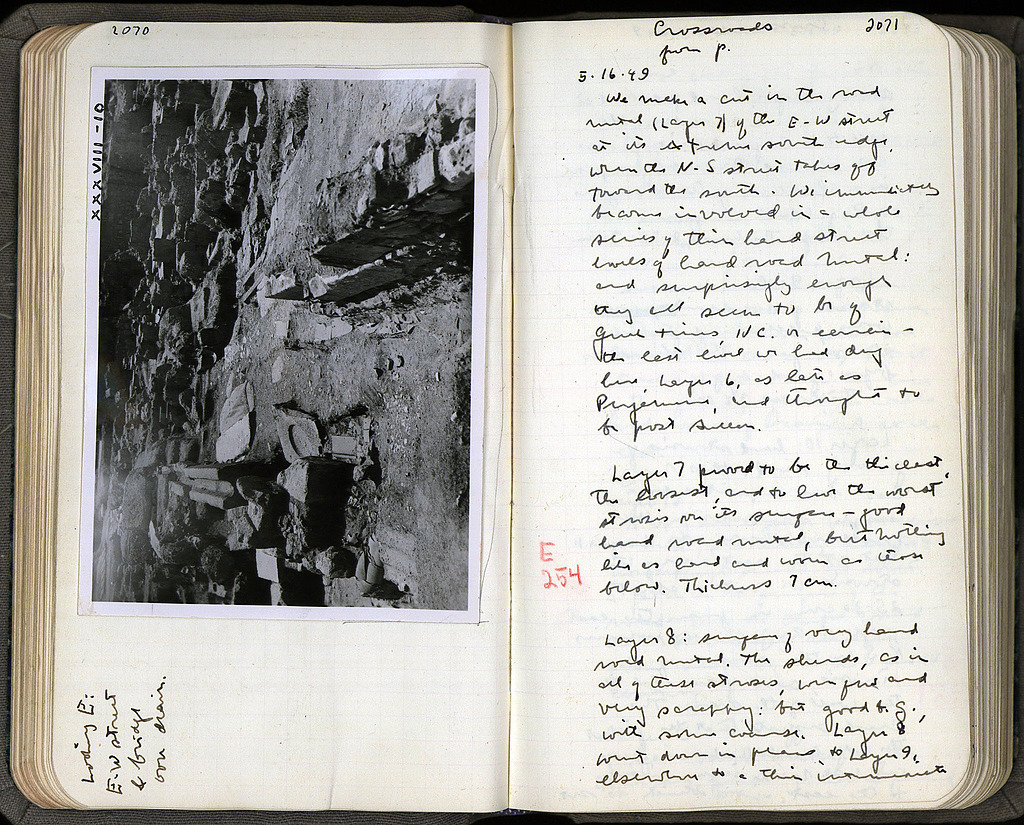 2070
XXXVIII-10
Looking E:
E-W street
& bridge
over drain.
Crossroads 2071
from p.
5.16.49
We make a cut in the road
metal (Layer 7) of the E-W street
at its extreme south edge,
where the N-S street takes off
toward the south. We immediately
become involved in a whole
series of thin hard street
levels of hard road metal:
and surprisingly enough
they all seem to be of
Greek times, IV C. or earlier -
the last level we had dug
here, Layer 6, as late as
Pergamene, and thought to
be post
Layer 7 proved to be the thickest,
the loosest, and to have the worst
strosis on its surface - good
hard road metal, but nothing
like as hard and worn as those
below. Thickness 7 cm.
E
254
Layer 8: surface of very hard
road metal. The sherds, as in
all of these stroses, were few and
very scrappy: but good b.g.,
with some coarse. Layer 8
went down in places to Layer 9,
elsewhere to a thin intermediate